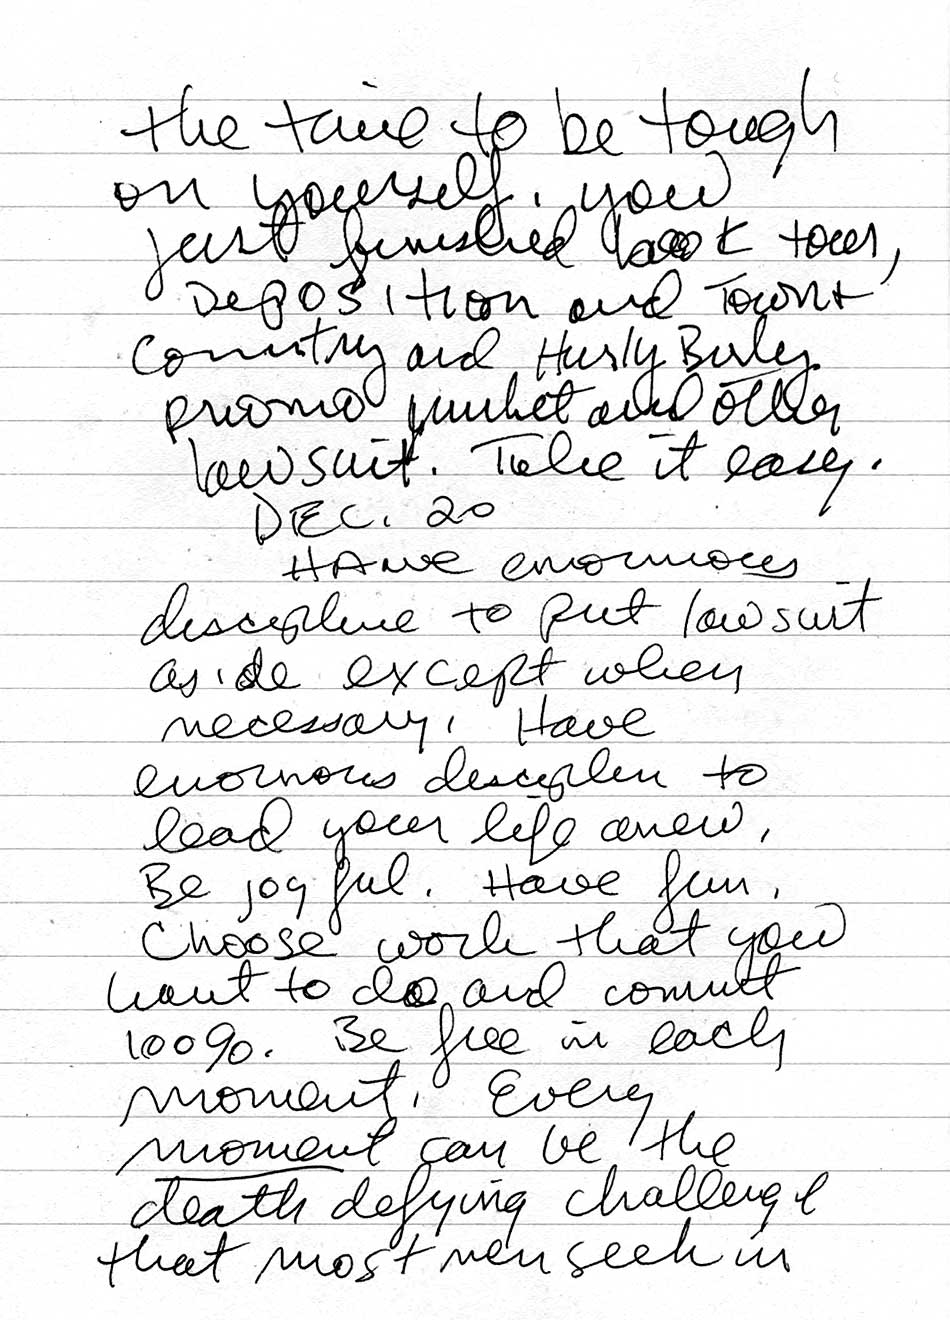 the time to be tough
on yourself. you
just finished book tour,
Deposition and Town +
Country and Hurly Burly
promo junket and other
lawsuit. Take it easy.
DEC. 20
HAve enormous
discipline to put lawsuit
aside except when
necessary. Have
enormous discipline to
lead your life anew.
Be joyful. Have fun.
Choose work that you
want to do and commit
100%. Be free in each
moment. Every
moment can be the
death defying challenge
that most men seek in